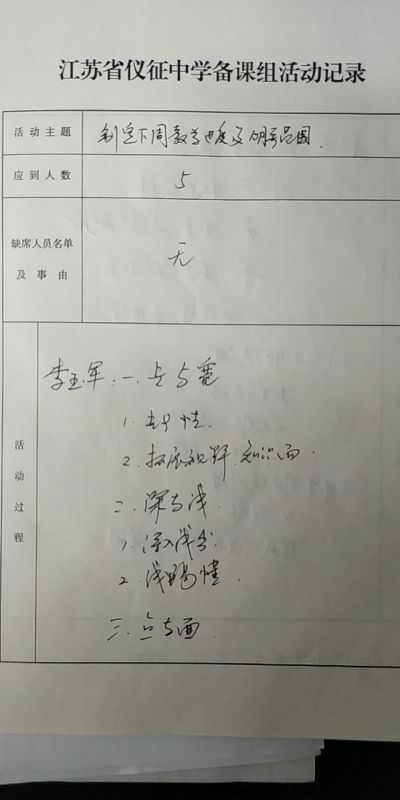 江苏省仪征中学备课组活动记录
活动主题
制定下周教学进度及明确范围.
应到人数
5
缺席人员名单
及事由
无
活动过程
李玉军: 一. 与宽
1. 性.
2. 拓展视野. 知识面.
二. 深与浅.
1. 深入浅出
2. 浅易懂.
三. 点与面.